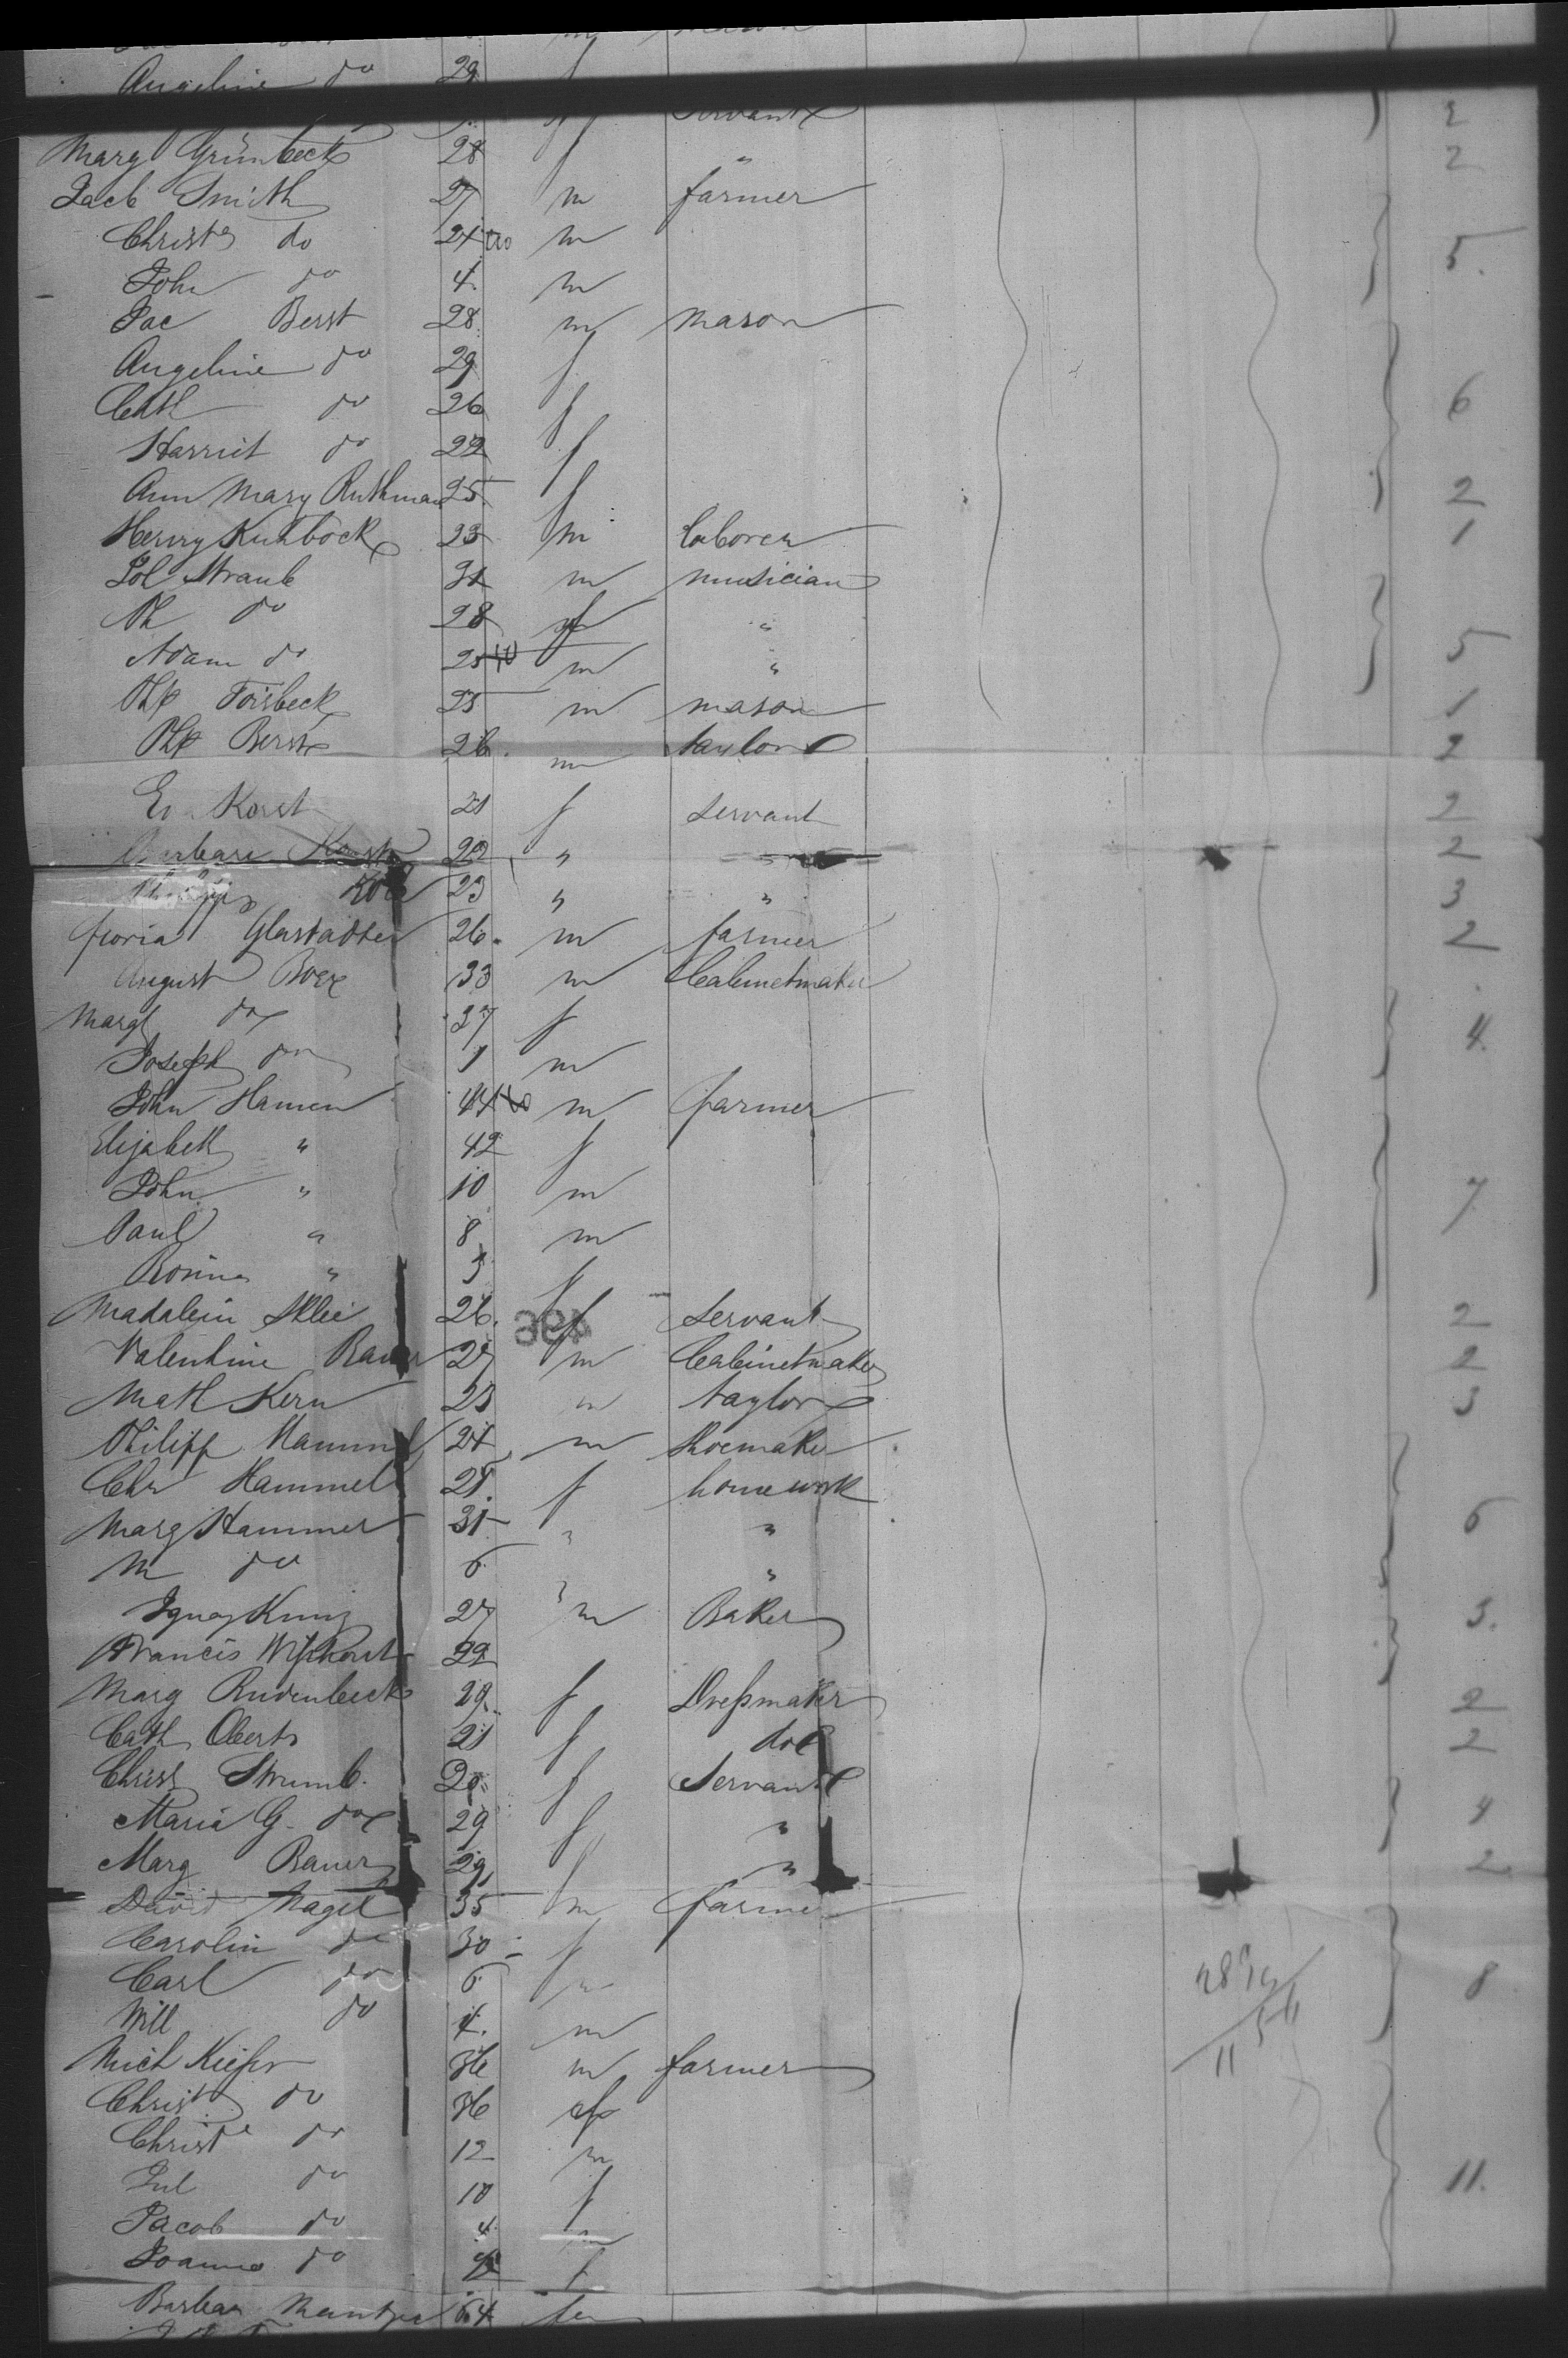 Angeline do 29 f
Servant 2
Marg Grünbeck 28 f " 2
Jacb Smith 27 m farmer
Christ do 24 m 5.
John do 4 m
Jac Berst 28 m mason
Angeline do 29 f
Cath do 26 f 6
Harriet do 22 f
Ann Mary Ruthman 25 f 2
Henry Kuhbock 23 m laborer 1
Joh Straub 31 m musician
Ph do 28 f "
Adam do 25 m " 5
Php Forsbeck 25 m mason 1
Php Berst 26 m taylor 2
Ev Korst 21 f servant 2
Barbara Korst 20 " " 2
23 " " 3
Glastadter 26 m farmer 2
August Boex 33 m Cabinetmaker
Margt do 27 f 4.
Joseph do 1 m
John Hamen 44 m farmer
Elizabeth " 42 f
John " 10 m 7
Paul " 8 m
Rosina " 3 f
Madalein Sklei 26 f servant 2
496
Valentine Bauer 27 m Cabinetmaker 2
Math Kern 23 m taylor 3
Philipp Hammel 24 m Shoemaker
Chr Hammel 28 f homework
Marg Hammer 31 " " 6
M do 6 "
Ignaz Kunz 27 m Baker 3.
Francis 22
Marg Rudenbeck 29 f Dressmaker 2
Cath Oberts 21 f do 2
Christ Strumb. 20 f Servant
Maria G. do 29 f " 4
Marg Bauer 29 f " 2
David Nagel 35 m farmer
Carolin do 30 f
Carl do 6 m 8
Will do 4. m
Mich Kiefer 36 m farmer
Christ do 36 f
Christe do 12 m
Jul do 10 f 11.
Jacob do 4 m
Joanna do f
Barbara 64